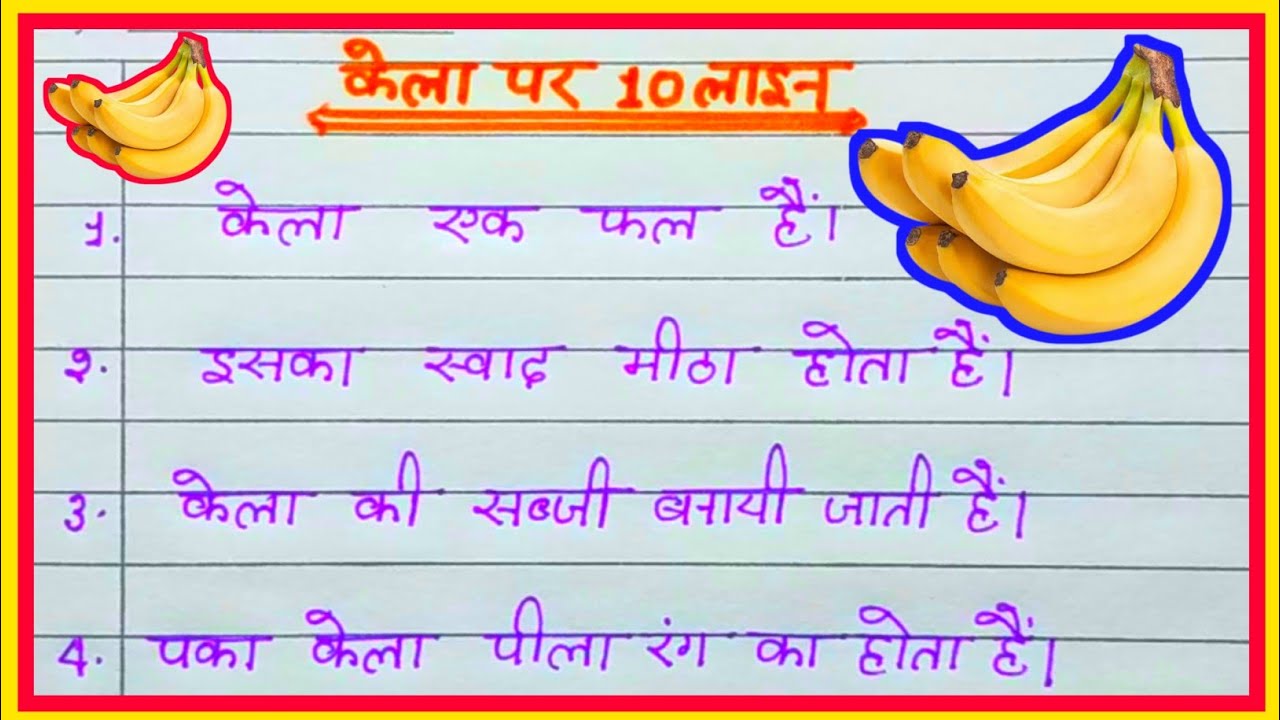 केला पर 10 लाइन
१. केला एक फल हैं।
२. इसका स्वाद मीठा होता हैं।
३. केला की सब्जी बनायी जाती हैं।
4. पका केला पीला रंग का होता हैं।